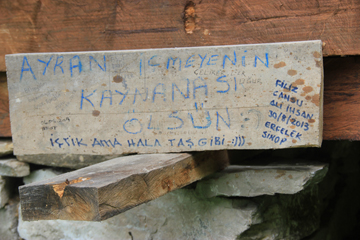 AYRAN İÇMEYENİN
KAYNANASI
OLSÜN
İÇTİK AMA HALA TAŞ GİBİ :)))
FİLİZ
CANSU
ALİ İHSAN
30/8/2013
ERFELEK
SİNOP